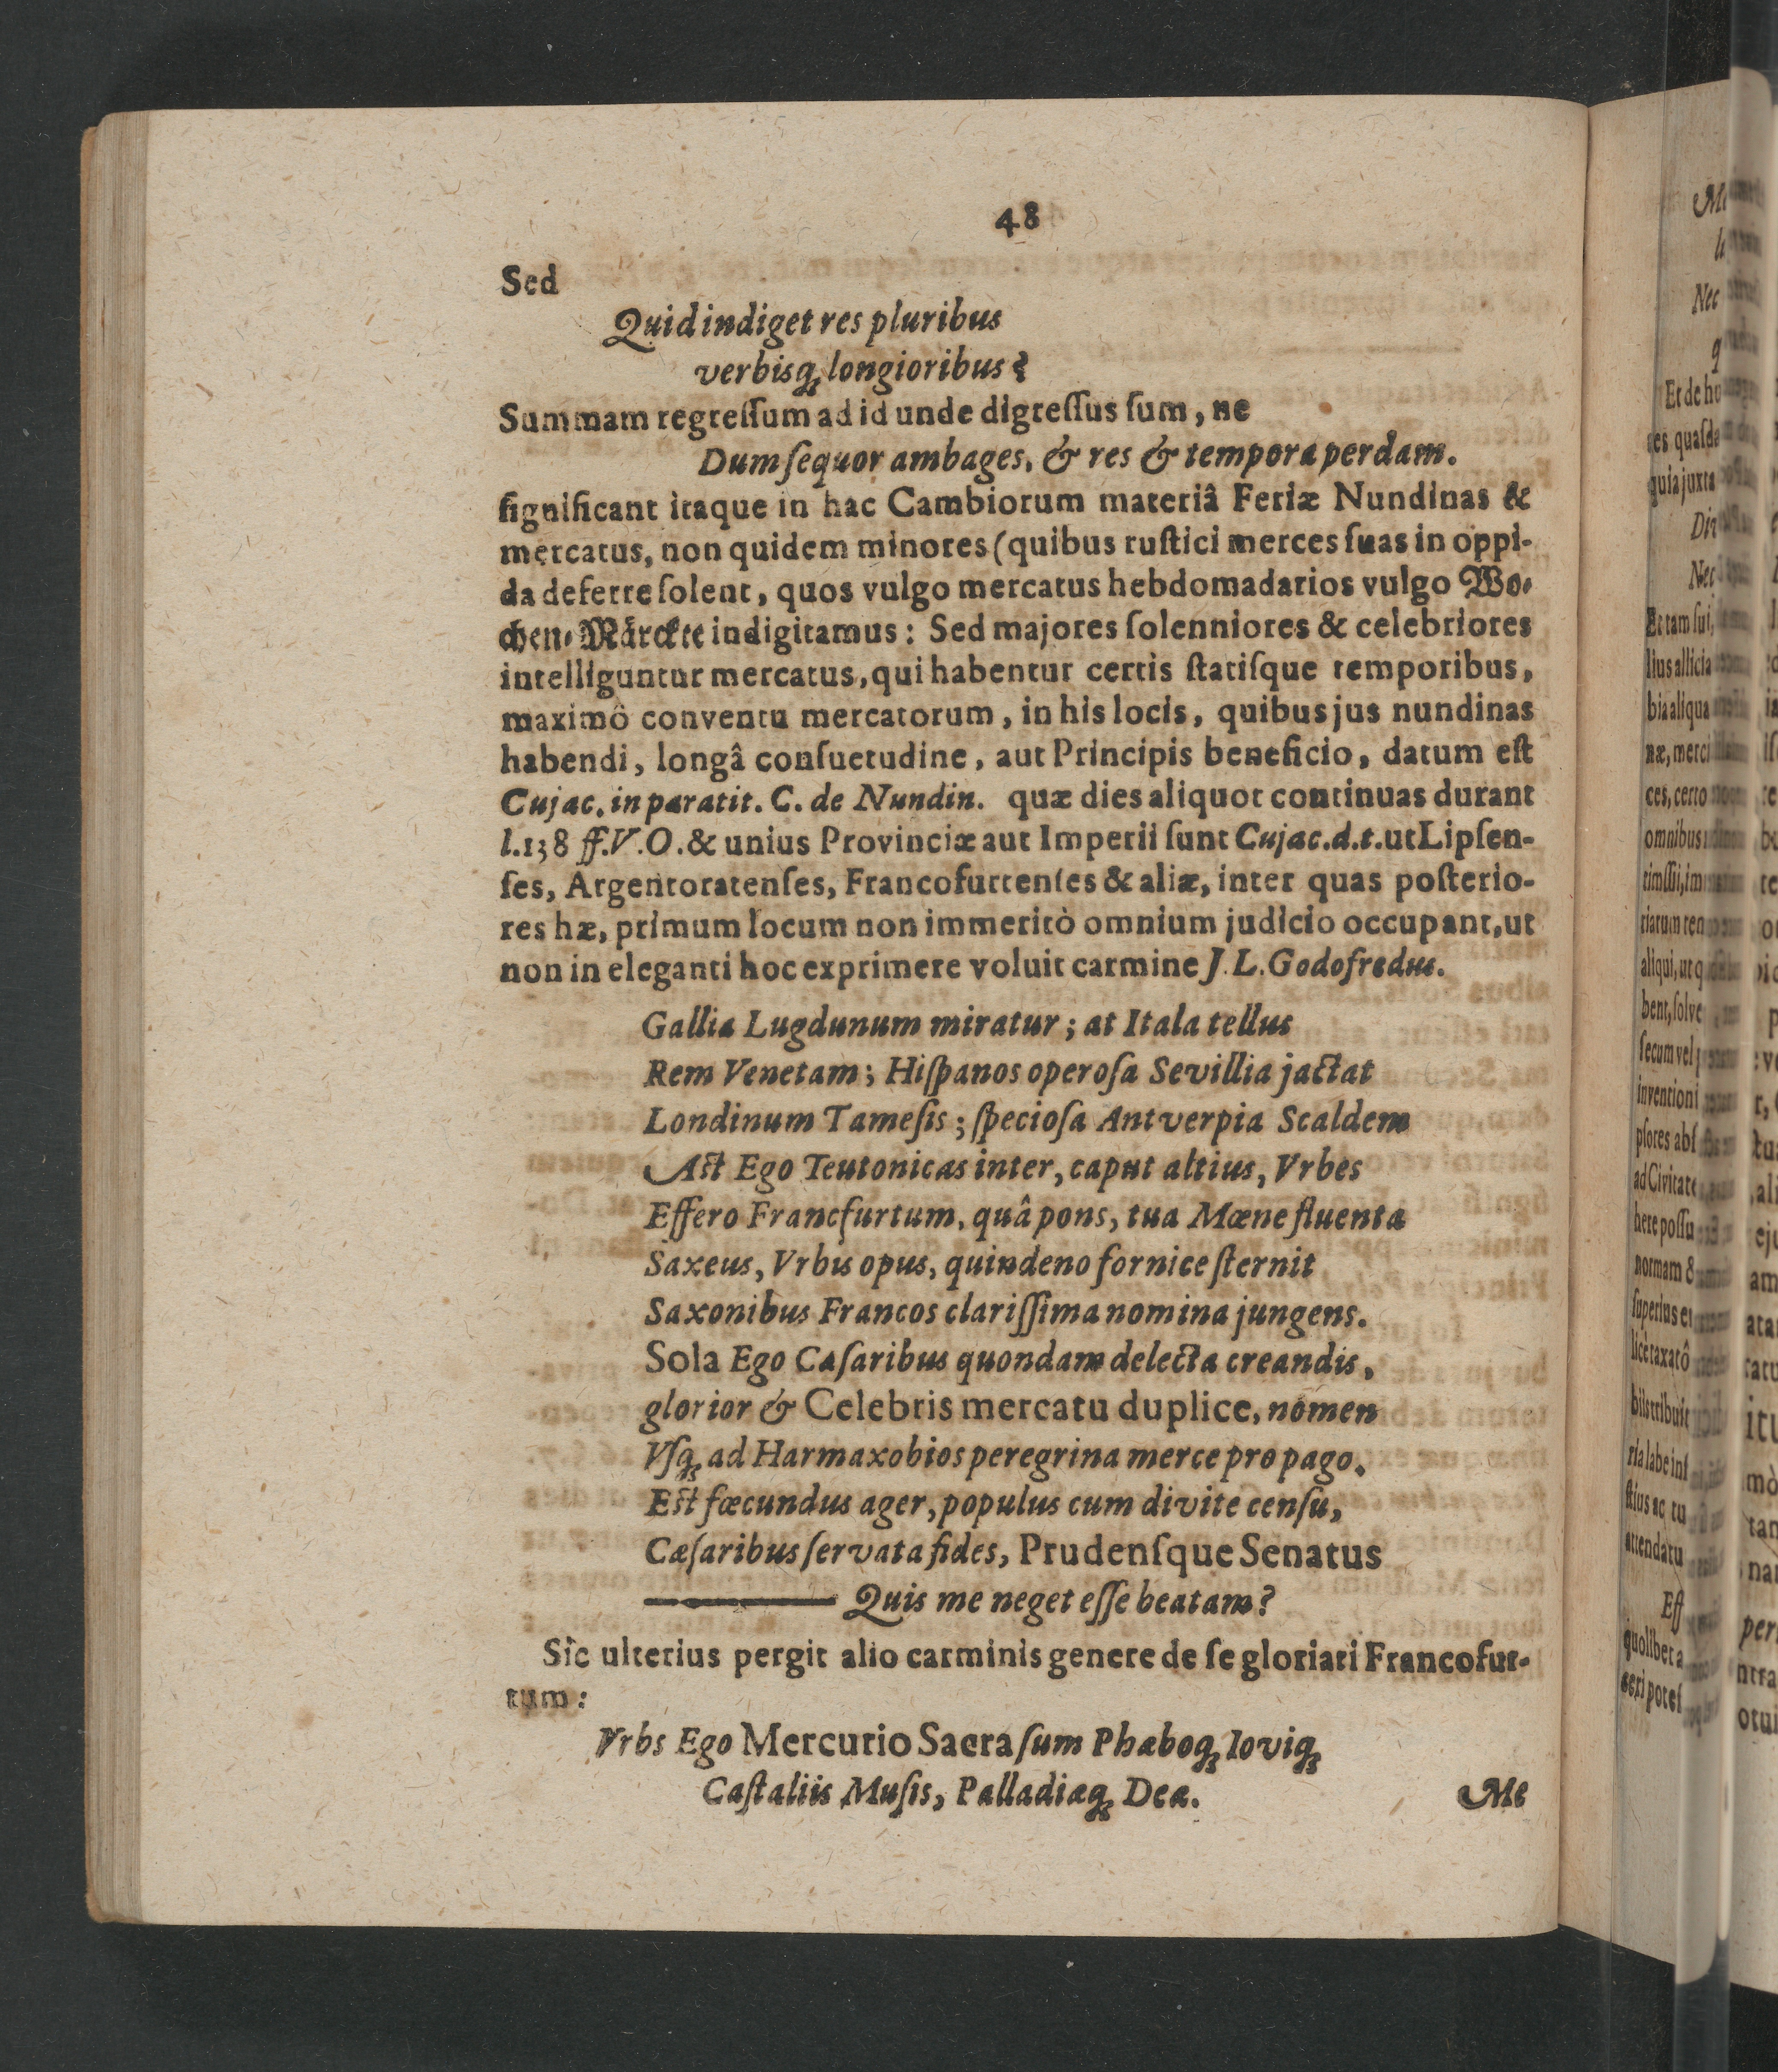 48
Sed
Quid indiget res pluribus
verbisq; longioribus?
Summam regressum ad id unde digressus sum, ne
Dum sequor ambages, & res & tempora perdam.
significant itaque in hac Cambiorum materiâ Feriæ Nundinas &
mercatus, non quidem minores (quibus rustici merces suas in oppi-
da deferre solent, quos vulgo mercatus hebdomadarios vulgo Wo-
chen-Märckte indigitamus: Sed majores solenniores & celebriores
intelliguntur mercatus, qui habentur certis statisque temporibus,
maximô conventu mercatorum, in his locis, quibus jus nundinas
habendi, longâ consuetudine, aut Principis beneficio, datum est
Cujac. in paratit. C. de Nundin. quæ dies aliquot continuas durant
l.138 ff. V.O. & unius Provinciæ aut Imperii sunt Cujac. d. t. ut Lipsen-
ses, Argentoratenses, Francofurtenses & aliæ, inter quas posterio-
res hæ, primum locum non immeritò omnium judicio occupant, ut
non in eleganti hoc exprimere voluit carmine J. L. Godofredus.
Gallia Lugdunum miratur; at Itala tellus
Rem Venetam; Hispanos operosa Sevillia jactat
Londinum Tamesis; speciosa Antverpia Scaldem
Ast Ego Teutonicas inter, caput altius, Vrbes
Effero Francfurtum, quâ pons, tua Mœne fluenta
Saxeus, Vrbis opus, quindeno fornice sternit
Saxonibus Francos clarissima nomina jungens.
Sola Ego Cæsaribus quondam delecta creandis,
glorior & Celebris mercatu duplice, nomen
Vsq; ad Harmaxobios peregrina merce propago.
Est fœcundus ager, populus cum divite censu,
Cæsaribus servata fides, Prudensque Senatus
Quis me neget esse beatam?
Sic ulterius pergit alio carminis genere de se gloriari Francofur-
tum:
Vrbs Ego Mercurio Sacra sum Phæboq; Ioviq;
Castaliis Musis, Palladiæq; Deæ.
Me